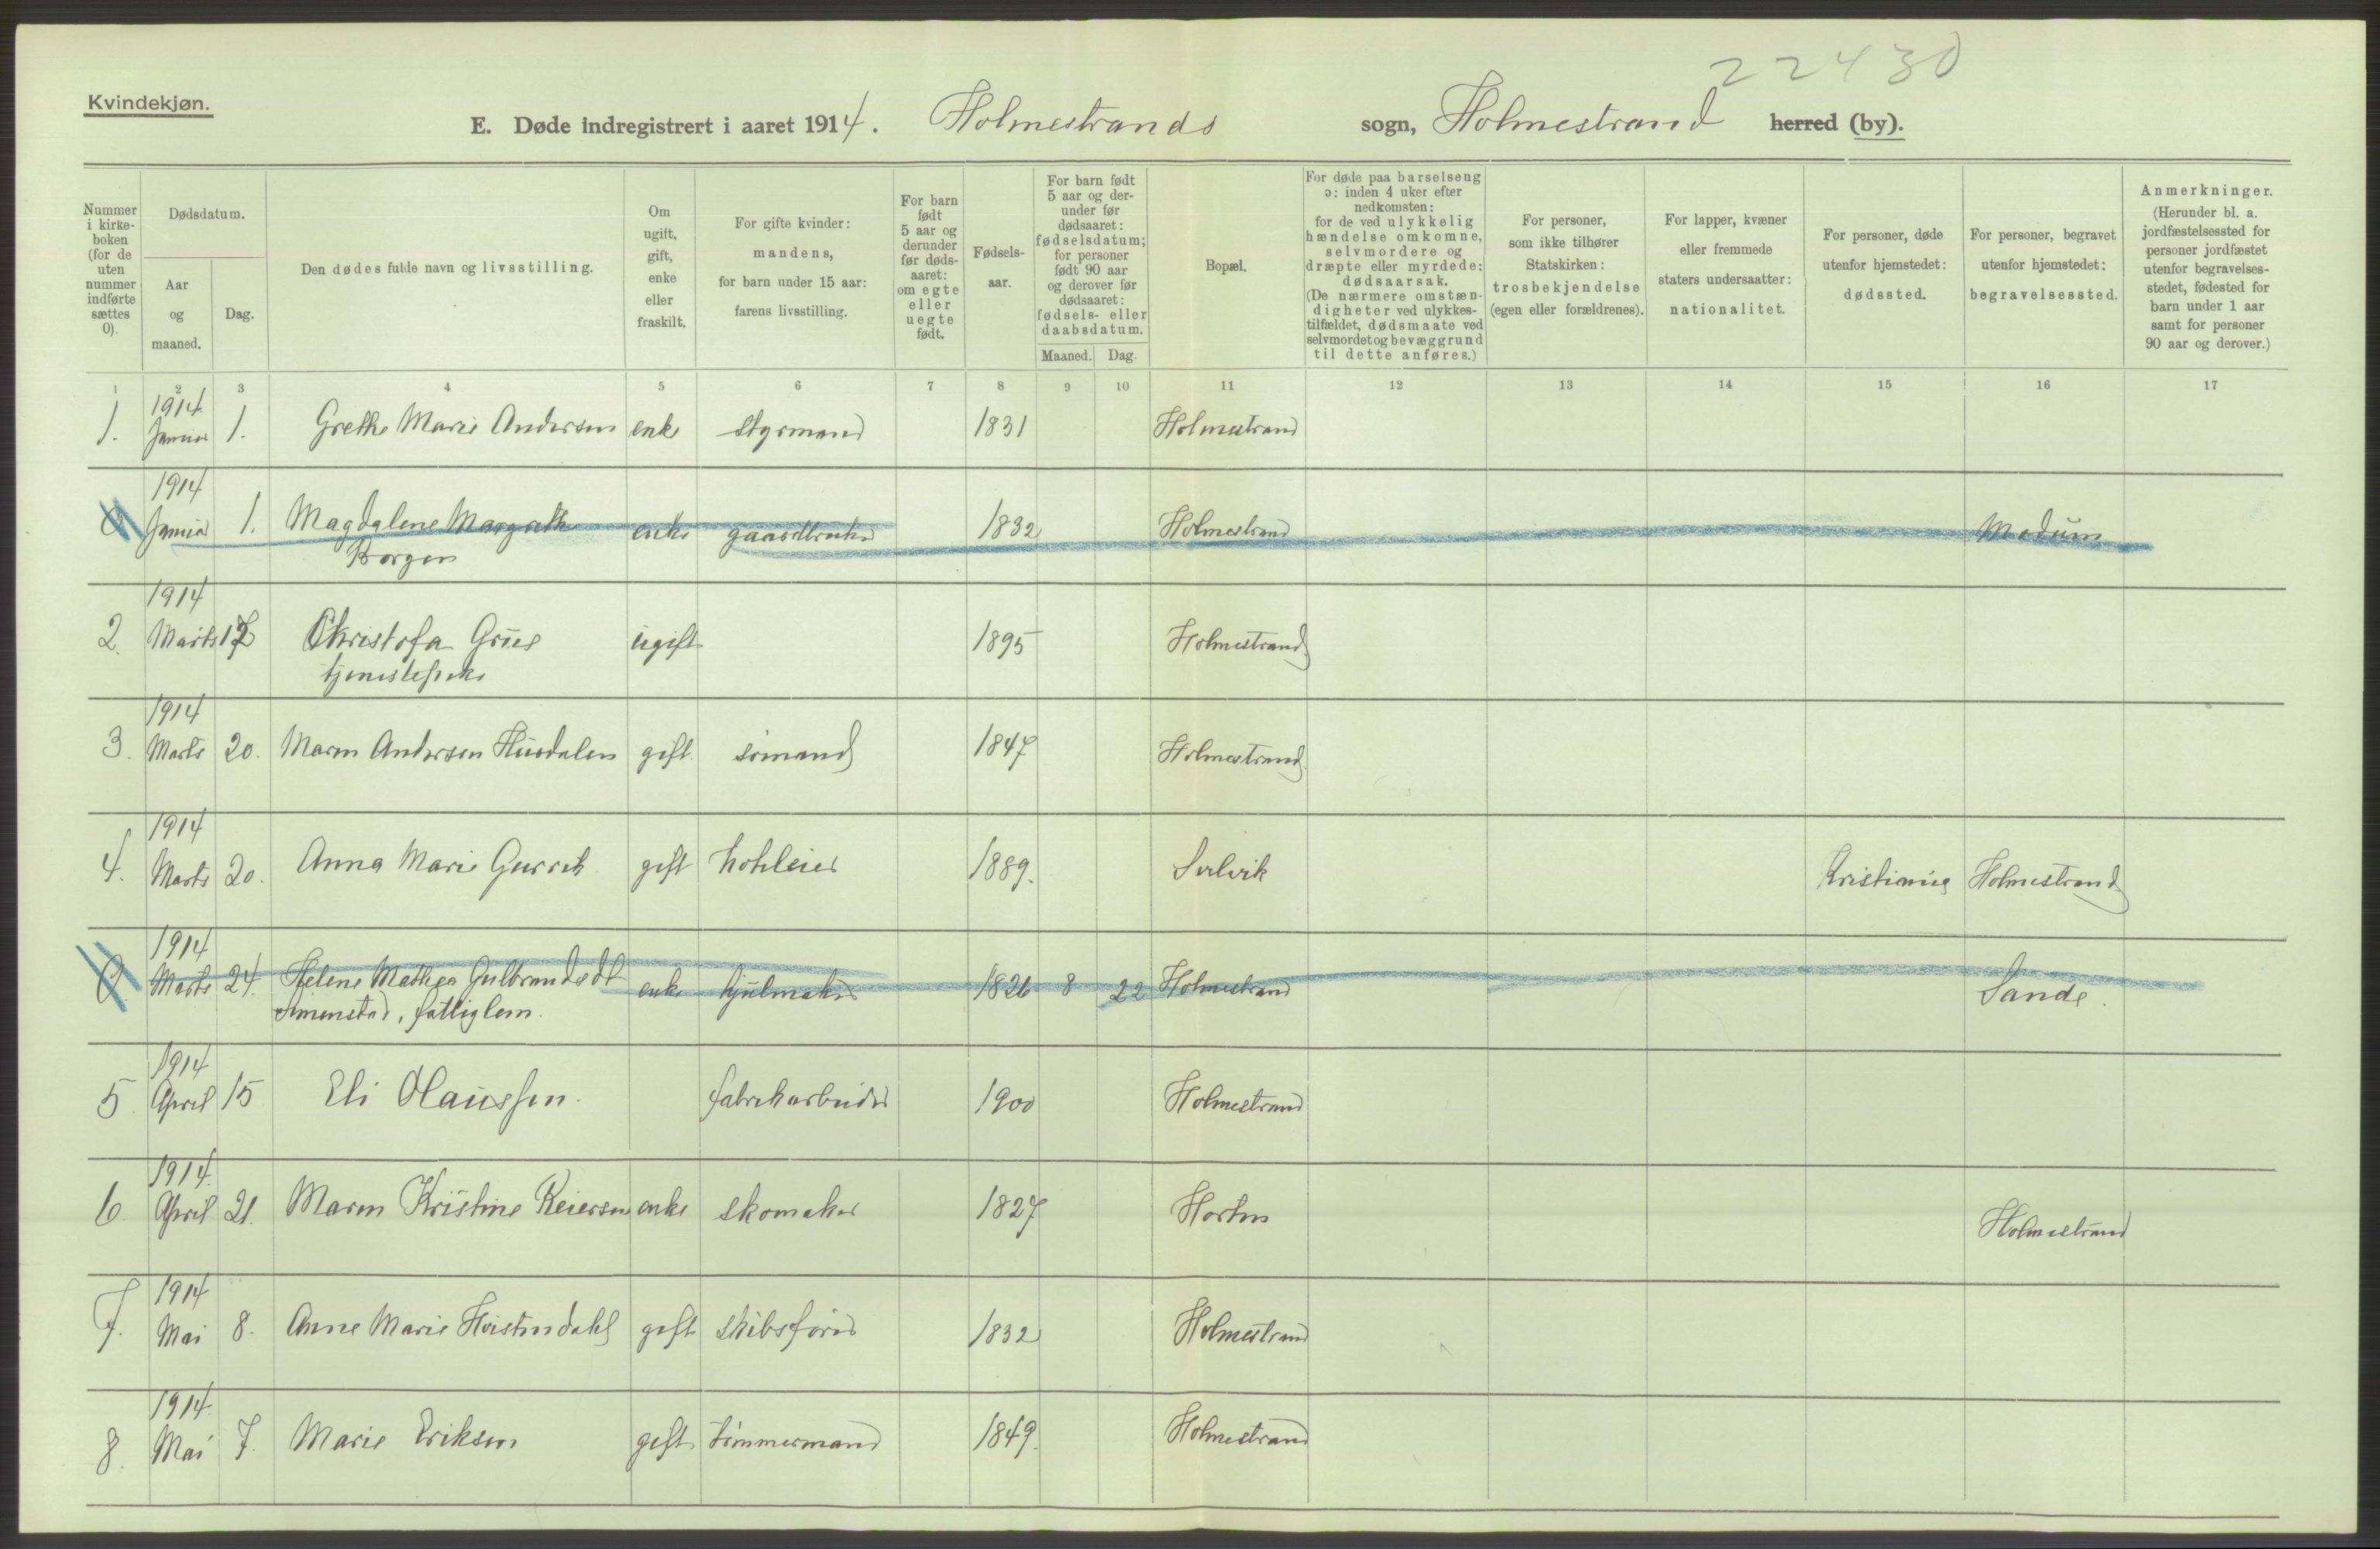 22430
Kvindekjøn.
E. Døde indregistrert i aaret 1914. Holmestrands sogn, Holmestrand herred (by).
Nummer i kirkeboken (for de uten nummer indførte sættes 0).
Dødsdatum.
Aar og maaned.
Dag.
Den dødes fulde navn og livsstilling.
Om ugift, gift, enke eller fraskilt.
For gifte kvinder: mandens, for barn under 15 aar: farens livsstilling.
For barn født 5 aar og derunder før dødsaaret: om egte eller uegte født.
Fødselsaar.
For barn født 5 aar og derunder før dødsaaret: fødselsdatum; for personer født 90 aar og derover før dødsaaret: fødsels- eller daabsdatum.
Maaned. Dag.
Bopæl.
For døde paa barselseng ɔ: inden 4 uker efter nedkomsten: for de ved ulykkelig hændelse omkomne, selvmordere og dræpte eller myrdede: dødsaarsak. (De nærmere omstændigheter ved ulykkestilfældet, dødsmaate ved selvmordet og bevæggrund til dette anføres.)
For personer, som ikke tilhører Statskirken: trosbekjendelse (egen eller forældrenes).
For lapper, kvæner eller fremmede staters undersaatter: nationalitet.
For personer, døde utenfor hjemstedet: dødssted.
For personer, begravet utenfor hjemstedet: begravelsessted.
Anmerkninger. (Herunder bl. a. jordfæstelsessted for personer jordfæstet utenfor begravelsesstedet, fødested for barn under 1 aar samt for personer 90 aar og derover.)
1 2 3 4 5 6 7 8 9 10 11 12 13 14 15 16 17
1. 1914 Januar 1. Grethe Marie Andersen enke styrmand 1831 Holmestrand
0 1914 Januar 1. Magdalene Margrethe enke gaardbruker 1832 Holmestrand Modum
Borgen
2. 1914 Marts Christofa ugift 1895 Holmestrand
tjenestepike
3. 1914 Marts 20. Maren Andersen Husdalen gift sømand 1847 Holmestrand
4. 1914 Marts 20. Anna Marie gift hoteleier 1889. Svelvik Kristiania Holmestrand
0. 1914 Marts 24. Helene Mathea Gulbrandsdt enke hjulmaker 1826 8 22 Holmestrand Sande.
Simenstad, fattiglem.
5. 1914 April 15 Eli Olaussen. fabrikarbeider 1900 Holmestrand
6. 1914. April 21. Maren Kristine Reiersen enke skomaker 1827 Horten Holmestrand
7. 1914 Mai 8. Anne Marie Hvistendahl gift skibsfører 1832 Holmestrand
8. 1914. Mai 7. Marie Eriksen gift tømmermand 1849. Holmestrand